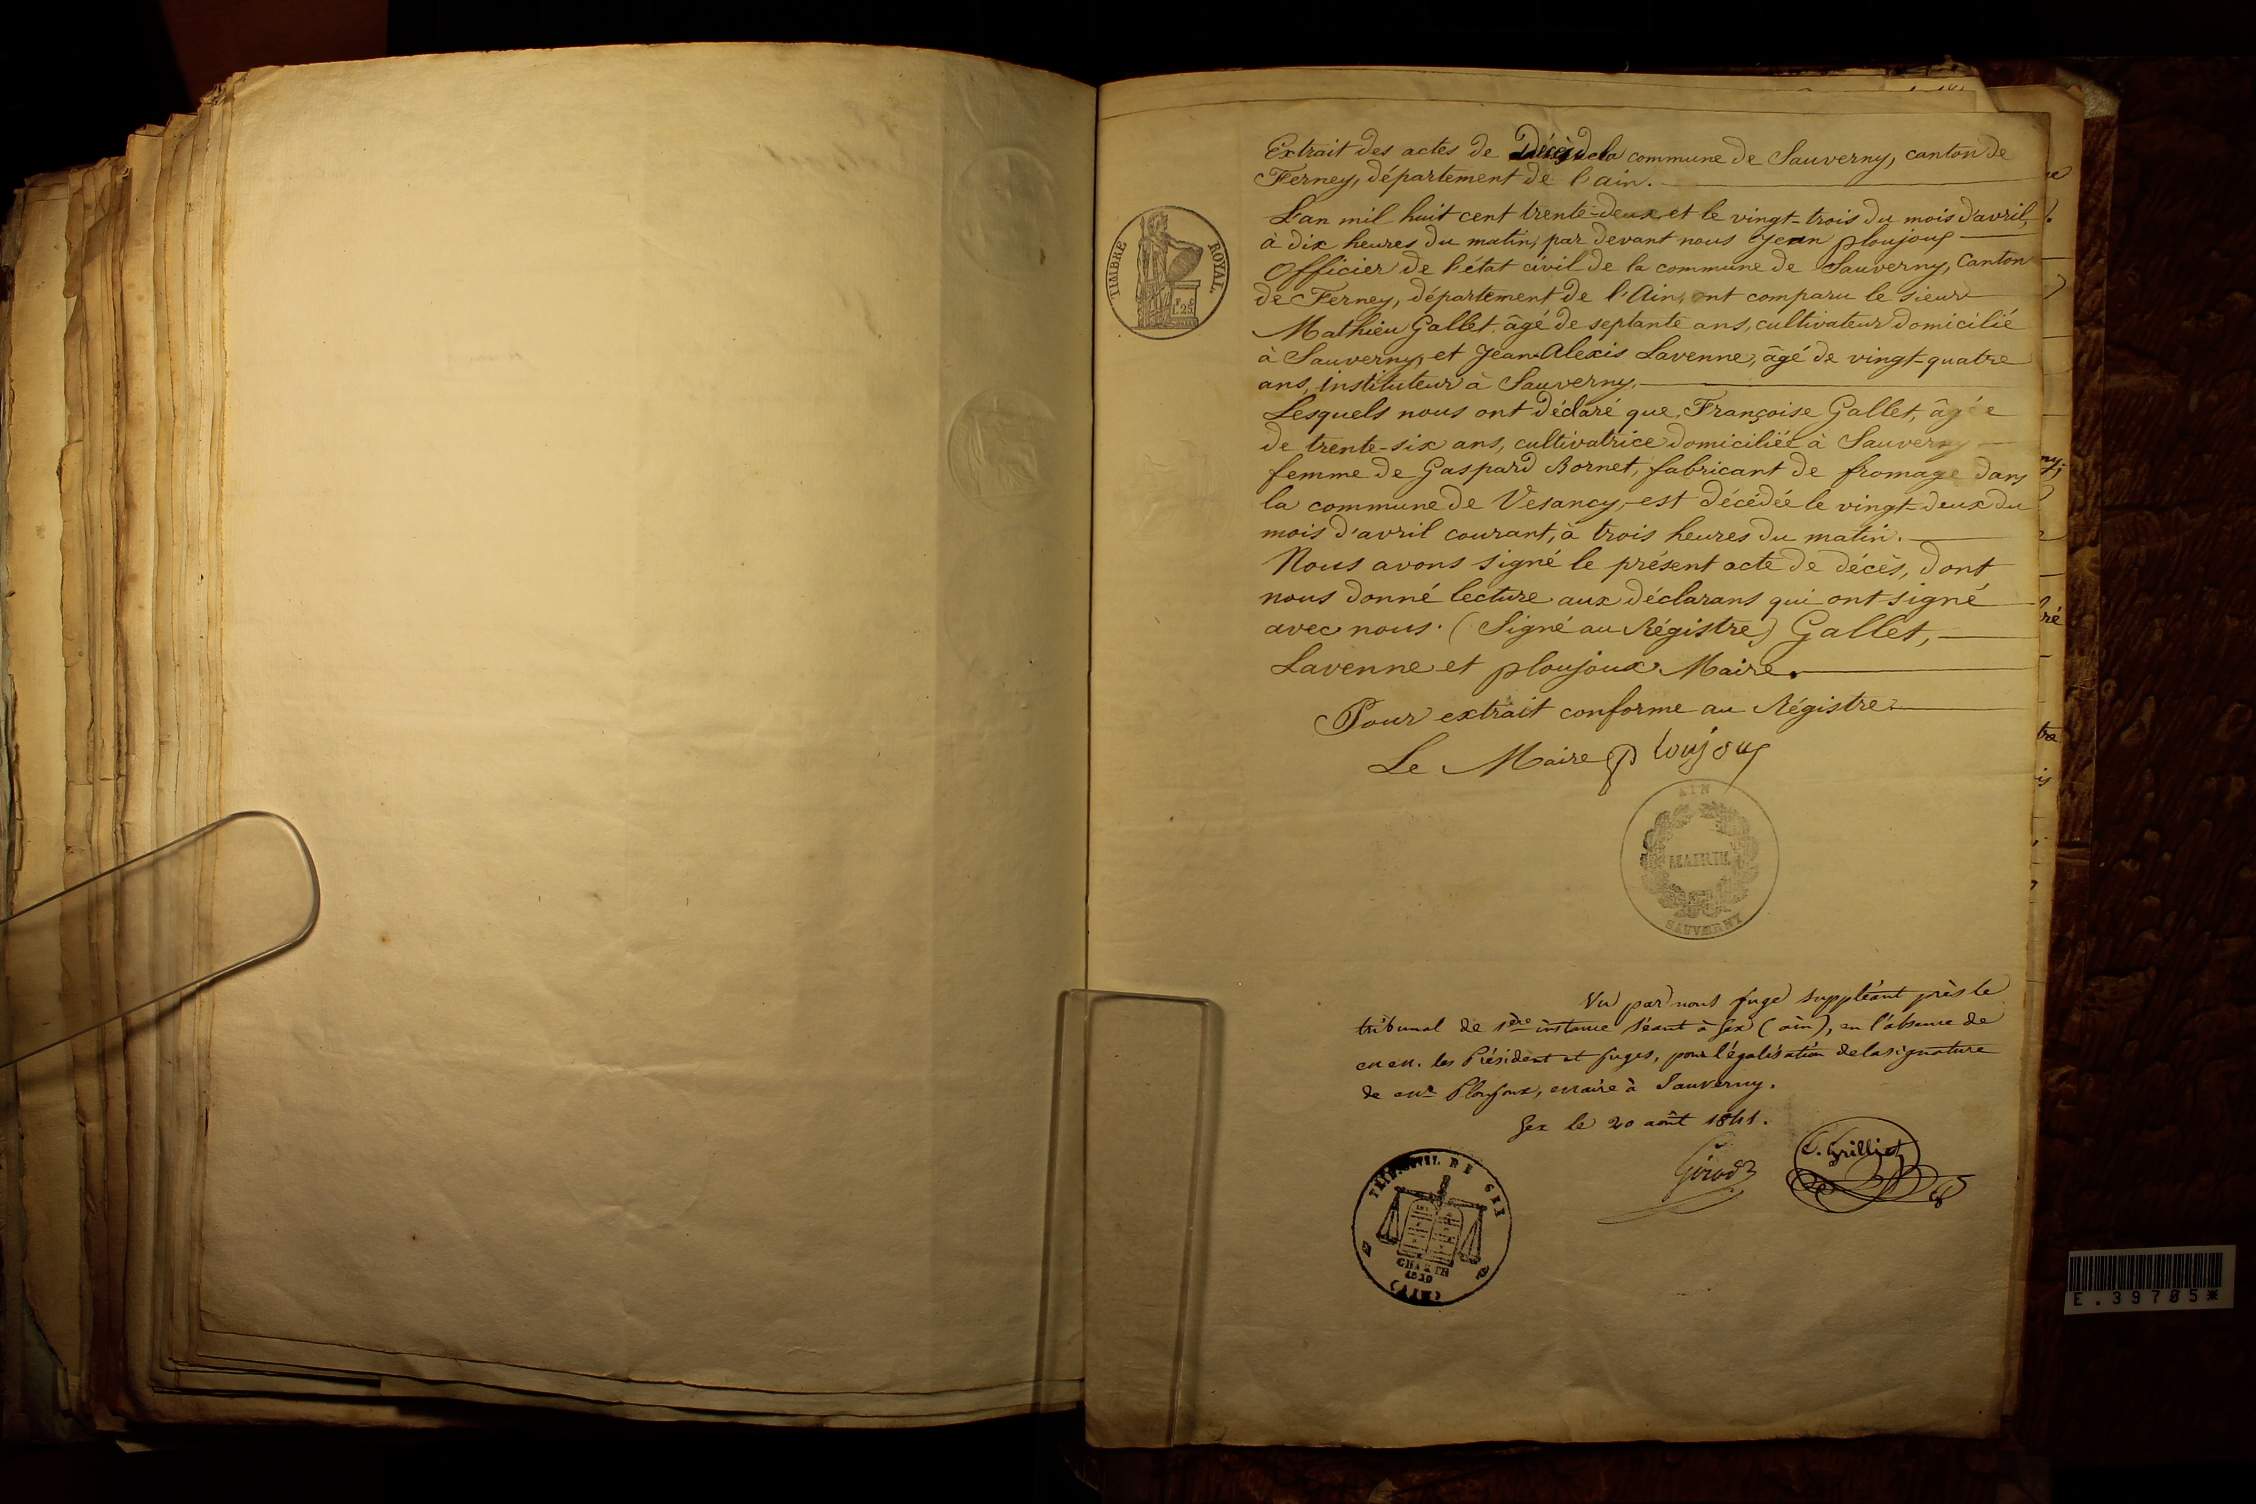 Extrait des actes de Décès de la commune de Sauverny, canton de
Ferney, département de l'ain.
L'an mil huit cent trente-deux et le vingt-trois du mois d'avril,
à dix heures du matin, par devant nous Jean ploujoux
Officier de l'état civil de la commune de Sauverny, Canton
de Ferney, département de l'Ain, ont comparu le sieur
Mathieu Gallet âgé de septante ans, cultivateur domicilié
à Sauverny, et Jean Alexis Lavenne, âgé de vingt-quatre
ans, instituteur à Sauverny.
Lesquels nous ont déclaré que Françoise Gallet, âgée
de trente-six ans, cultivatrice domiciliée à Sauverny
femme de Gaspard Bornet, fabricant de fromage dans
la commune de Vesancy, est décédée le vingt-deux du
mois d'avril courant, à trois heures du matin.
Nous avons signé le présent acte de décès, dont
nous donné lecture aux déclarans qui ont signé
avec nous. (Signé au Régistre) Gallet,
Lavenne et ploujoux Maire.
Pour extrait conforme au Régistre
Le Maire Ploujoux
TIMBRE ROYAL
F. C.
1.25
AIN
MAIRIE
SAUVERNY
Vu par nous juge suppléant près le
tribunal de 1ère instance séant à Gex (ain), en l'absence de
MM. les Président et juges, pour légalisation de la signature
de Mr Ploujoux, maire à Sauverny.
Gex le 20 août 1841.
Girod
C. Grilliet
TRIB. CIVIL DE GEX
CHARTE
1830
(AIN)
E.39705*